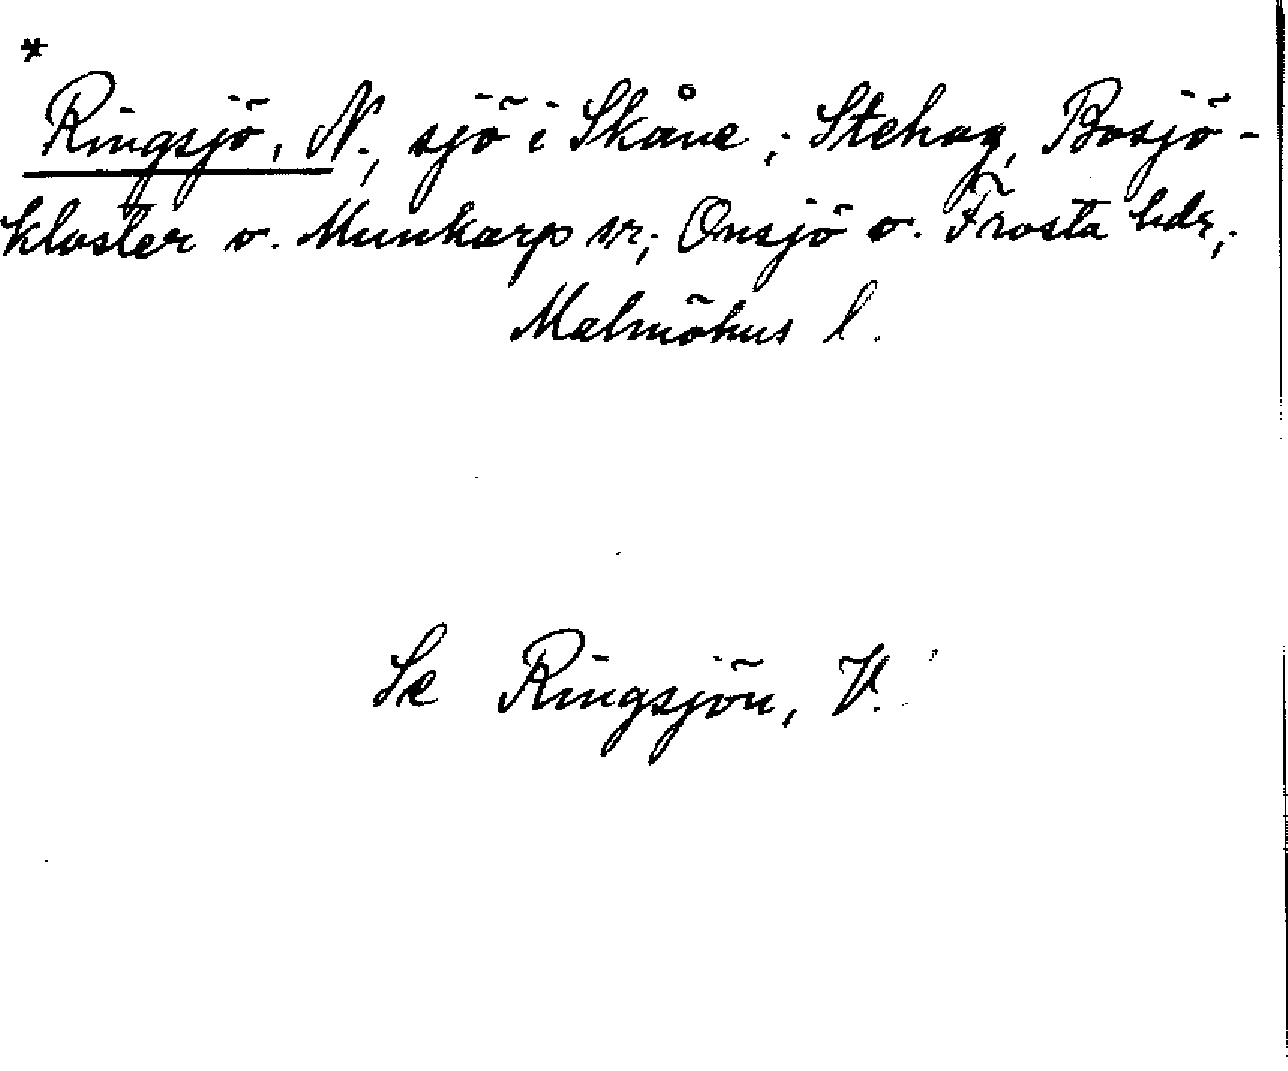 *
Ringsjö, N., sjö i Skåne; Stehag, Bosjö-
kloster o. Munkarp snr; Onsjö o. Frosta hdr;
Malmöhus l.
Se Ringsjön, V.